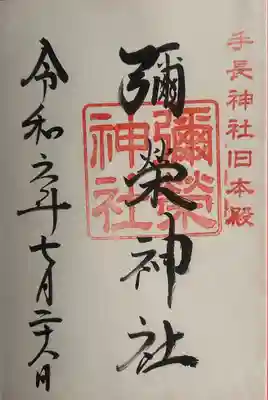 手長神社旧本殿
彌榮神社
彌榮
神社
令和六年七月二十八日